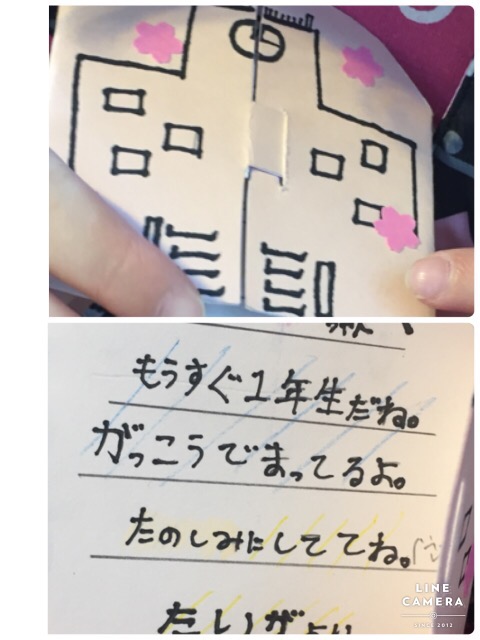 もうすぐ1年生だね。
がっこうでまってるよ。
たのしみにしててね。
LINE
CAMERA
SINCE 2012